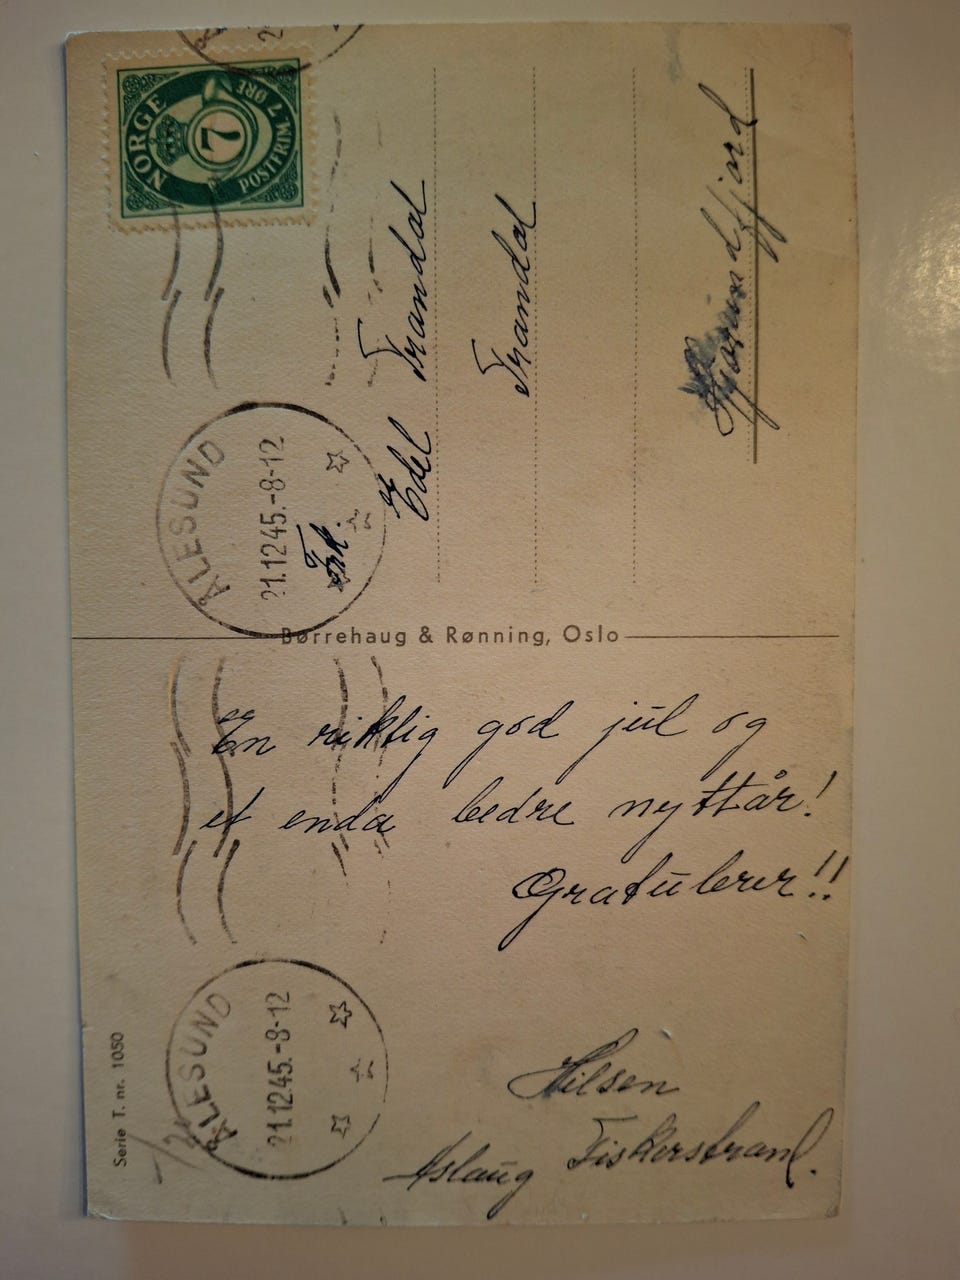 NORGE
7
POSTFRIM. 7 ØRE
ÅLESUND
21.12.45.-8-12
Frk.
Edel Trandal
Trandal
Hjørundfjord
Børrehaug & Rønning, Oslo
En riktig god jul og
et enda bedre nyttår!
Gratulerer!!
Hilsen
Aslaug Fiskerstrand.
ÅLESUND
21.12.45.-8-12
Serie T. nr. 1050